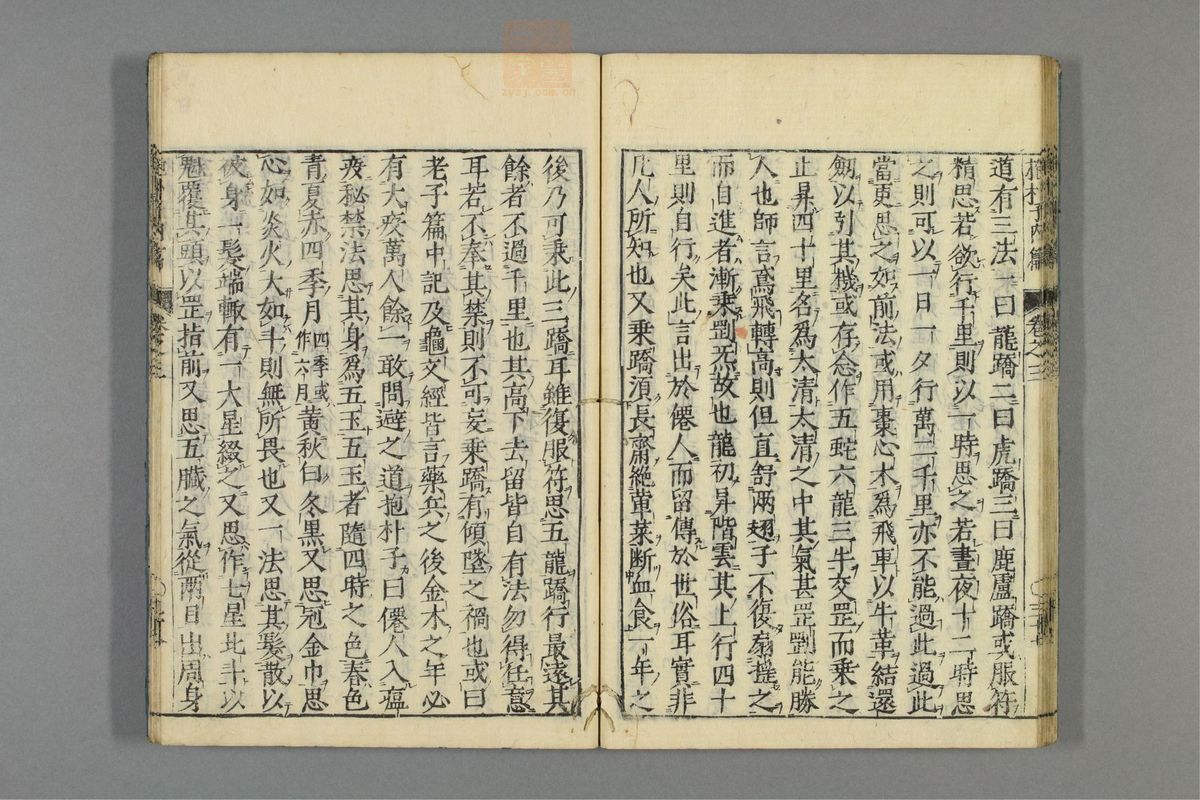 道有三法一曰龍蹻二曰虎蹻三曰鹿盧蹻或服符
精思若欲行千里則以一時思之若晝夜十二時思
之則可以一日一夕行萬二千里亦不能過此過此
當更思之如前法或用棗心木爲飛車以牛革結還
劔以引其機或存念作五蛇六龍三牛交罡而乘之
止昇四十里名爲太清太清之中其氣甚罡剛能勝
人也師言鳶飛轉高則但直舒兩翅了不復扇搖之
而自進者漸乘剛炁故也龍初昇階雲其上行四十
里則自行矣此言出於僊人而留傳於世俗耳實非
凡人所知也又乘蹻須長齋絶葷菜断血食一年之
後乃可乘此三蹻耳雖復服符思五龍蹻行最遠其
餘者不過千里也其高下去留皆自有法勿得任意
耳若不奉其禁則不可妄乘蹻有傾墜之禍也或曰
老子篇中記及龜文經皆言藥兵之後金木之年必
有大疫萬人餘一敢問避之道抱朴子曰僊人入瘟
疫秘禁法思其身爲五玉五玉者隨四時之色春色
青夏赤四季月四季或作六月黃秋白冬黑又思冠金巾思
心如炎火大如斗則無所畏也又一法思其髮散以
被身一髮端輙有一大星綴之又思作七星北斗以
魁覆其頭以罡指前又思五臟之氣從兩目出周身
抱朴子内篇
卷之三
zysj.com.cn